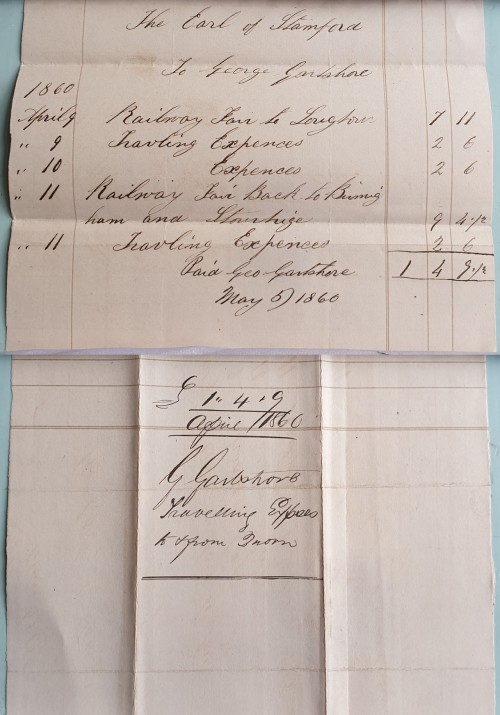 The Earl of Stamford
To George Gartshore
1860
April 9 Railway Fair to Lougbour 7 11
" 9 Travling Expences 2 6
" 10 Expences 2 6
" 11 Railway Fair Back to Biming
ham and Stourbige 9 4 1/2
" 11 Travling Expences 2 6
Paid Geo Gartshore 1 4 9 1/2
May 5) 1860
£ 1 " 4 " 9
April / 1860
G Gartshore
Travelling Expses
to & from Quorn